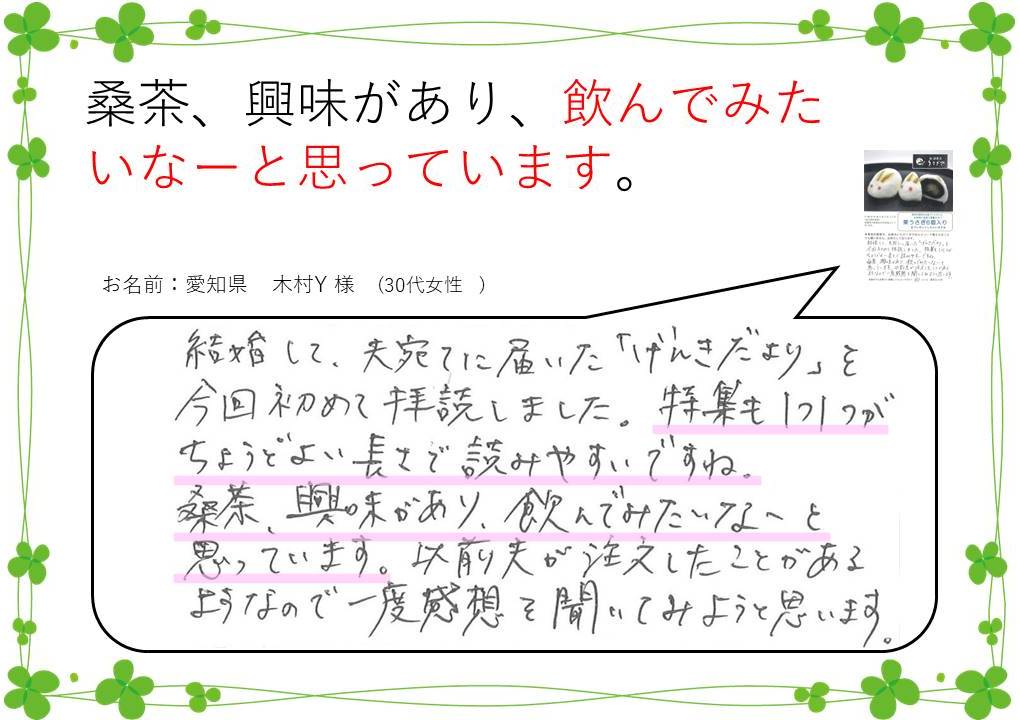 桑茶、興味があり、飲んでみた
いなーと思っています。
お名前：愛知県　木村Y 様　(30代女性　)
菓うさぎ6個入り
結婚して、夫宛てに届いた「げんきだより」を
今回初めて拝読しました。特集も1つ1つが
ちょうどよい長さで読みやすいですね。
桑茶、興味があり、飲んでみたいな～と
思っています。以前夫が注文したことがある
ようなので一度感想を聞いてみようと思います。